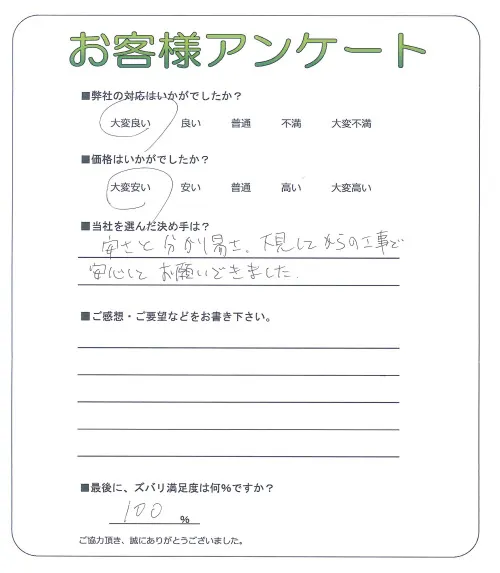 お客様アンケート
■弊社の対応はいかがでしたか？
大変良い 良い 普通 不満 大変不満
■価格はいかがでしたか？
大変安い 安い 普通 高い 大変高い
■当社を選んだ決め手は？
安さと分かり易さ。下見してからの工事で
安心してお願いできました。
■ご感想・ご要望などをお書き下さい。
■最後に、ズバリ満足度は何％ですか？
100 ％
ご協力頂き、誠にありがとうございました。